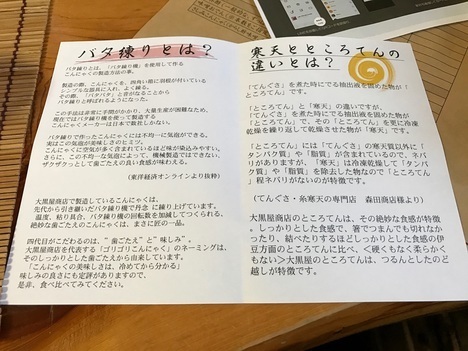 バタ練りとは？
バタ練りとは、「バタ練り機」を使用して作る
こんにゃくの製造方法の事。
製造の際、こんにゃくを、四角い箱に羽根が付いている
シンプルな器具に入れ、よく練る。
その際、「バタバタ」と音がなることから
バタ練りと呼ばれるようになった。
この手法は非常に手間がかかり、大量生産が困難なため、
現在でバタ練り機を使って製造する
こんにゃくメーカーは日本で数れしかない。
バタ練りで作ったこんにゃくには不均一に気泡ができる。
実はこの気泡が美味しさのヒミツ。
こんにゃくに空気が多く含まれているほど味が染込みやすい。
さらに、この不均一な気泡によって、機械製造ではできない、
ザクザクっとして歯ごたえの良い食感が味わえる。
（東洋経済オンラインより抜粋）
大黒屋商店で製造しているこんにゃくは、
先代から引き継いだバタ練り機で丹念に練り上げています。
温度、粘り具合、バタ練り機の回転数を加減してつくられる、
絶妙な歯ごたえのこんにゃくは、まさに匠の一品。
四代目がこだわるのは、”歯ごたえ”と”味しみ”。
大黒屋商店を代表する「ゴリゴリこんにゃく」のネーミングは、
そのしっかりとした歯ごたえから由来しています。
「こんにゃくの美味しさは、冷めてから分かる」
味しみの良さにも定評がありますので、
是非、食べ比べてみてください。
寒天とところてんの
違いとは？
「てんぐさ」を煮た時にでる抽出液を固めた物が「
ところてん」です。
「ところてん」と「寒天」の違いですが、
「てんぐさ」を煮た時にでる抽出液を固めた物が「
ところてん」で、その「ところてん」を更に冷凍
乾燥を繰り返して乾燥させた物が「寒天」です。
「ところてん」には「てんぐさ」の寒天質以外に「
タンパク質」や「脂質」が含まれているので、ネバ
リがありますが、「寒天」は冷凍乾燥して「タンパ
ク質」や「脂質」を除去した物なので「ところてん
」程ネバリがないのが特徴です。
（てんぐさ・糸寒天の専門店　森田商店様より）
大黒屋商店のところてんは、その絶妙な食感が特徴
。しっかりとした食感で、箸でつまんでも切れなか
ったり、結べたりするほどしっかりとした食感の伊
豆方面のところてんに比べ、＜硬くもなく柔らかく
もない＞大黒屋のところてんは、つるんとしたのど
越しが特徴です。